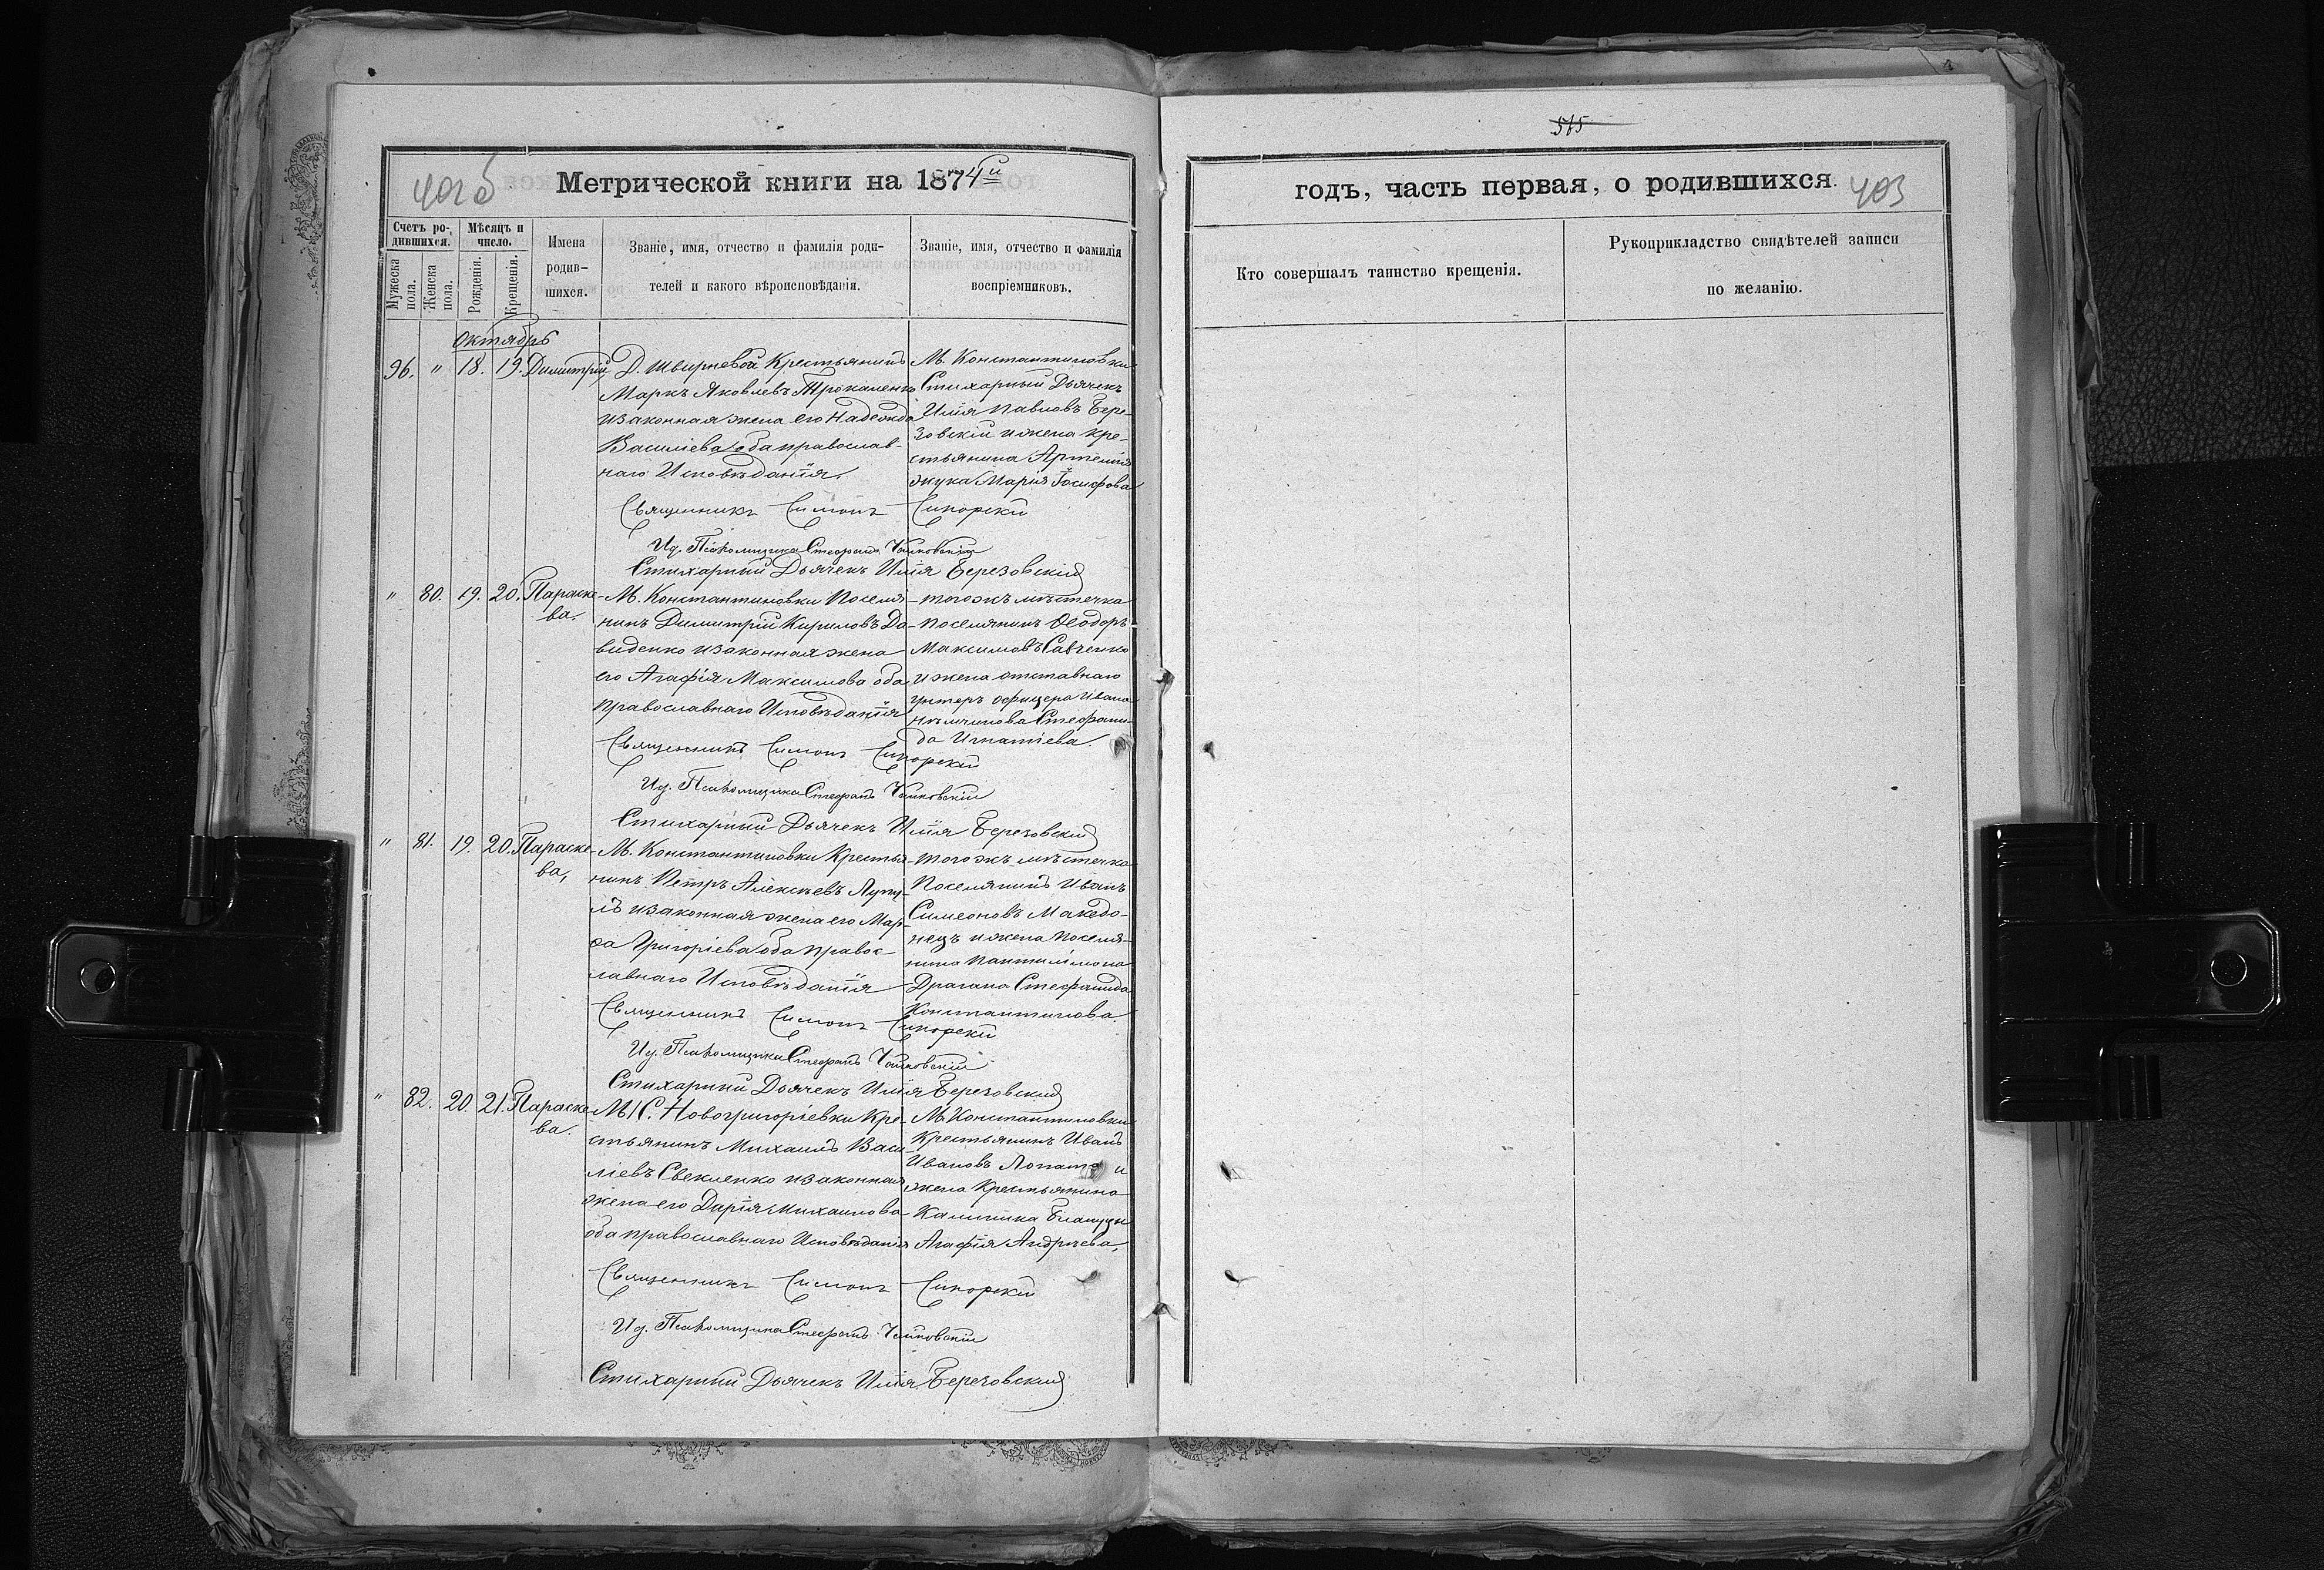 515
402 б
Метрической книги на 1874й
годъ, часть первая, о родившихся.
403
Счетъ ро-
дившихся.
Мѣсяцъ и
число.
Мужеска пола.
Женска пола.
Рожденія.
Крещенія.
Имена
родив-
шихся.
Званіе, имя, отчество и фамилія роди-
телей и какого вѣроисповѣданія.
Званіе, имя, отчество и фамилія
воспріемниковъ.
Кто совершалъ таинство крещенія.
Рукоприкладство свидѣтелей записи
по желанію.
Октябрь
96. " 18. 19. Димитрій,
Д. Швырневой Крестьянинъ
Маркъ Яковлевъ
и законная жена его Надежда
Василіева оба православ-
наго Исповѣданія.
М. Константиновки
Стихарный Дьячекъ
Илія Павловъ Бере-
зовскій и жена кре-
стьянина Артемія
жука Марія Іосифова
Священникъ Симонъ Сикорскій
Ид. Псаломщика Стефанъ Чайковскій
Стихарный Дьячекъ Илія Березовскій
" 80. 19. 20. Параске-
ва.
М. Константиновки Поселя-
нинъ Димитрій Кириловъ Да-
виденко и законная жена
его Агафія Максимова оба
православнаго Исповѣданія
тогожъ мѣстечка
поселянинъ Ѳеодоръ
Максимовъ Савченко
и жена отставнаго
унтеръ офицера Ивана
Стефани-
да Игнатіева.
Священникъ Симонъ Сикорскій
Ид. Псаломщика Стефанъ Чайковскій
Стихарный Дьячекъ Илія Березовскій
" 81. 19. 20. Параске-
ва,
М. Константиновки Крестья-
нинъ Петръ Алексѣевъ Лупу-
лъ и законная жена его Мар-
ѳа Григоріева оба правос
лавнаго Исповѣданія
тогожъ мѣстечка
Поселянинъ Иванъ
Симеоновъ Македо-
нецъ и жена поселя-
нина Пантилімона
Драгана Стефанида
Константинова.
Священникъ Симонъ Сикорскій
Ид. Псаломщика Стефанъ Чайковскій
Стихарный Дьячекъ Илія Березовскій
" 82. 20. 21. Параске-
ва.
С. Новогригоріевки Кре-
стьянинъ Михаилъ Васи-
ліевъ Свекленко и законная
жена его Дарія Михаилова
оба православнаго Исповѣданія
М. Константиновки
Крестьянинъ Иванъ
Ивановъ Лопата и
жена Крестьянина
Калиника
Агафія Андрѣева,
Священникъ Симонъ Сикорскій
Ид. Псаломщика Стефанъ Чайковскій
Стихарный Дьячекъ Илія Березовскій